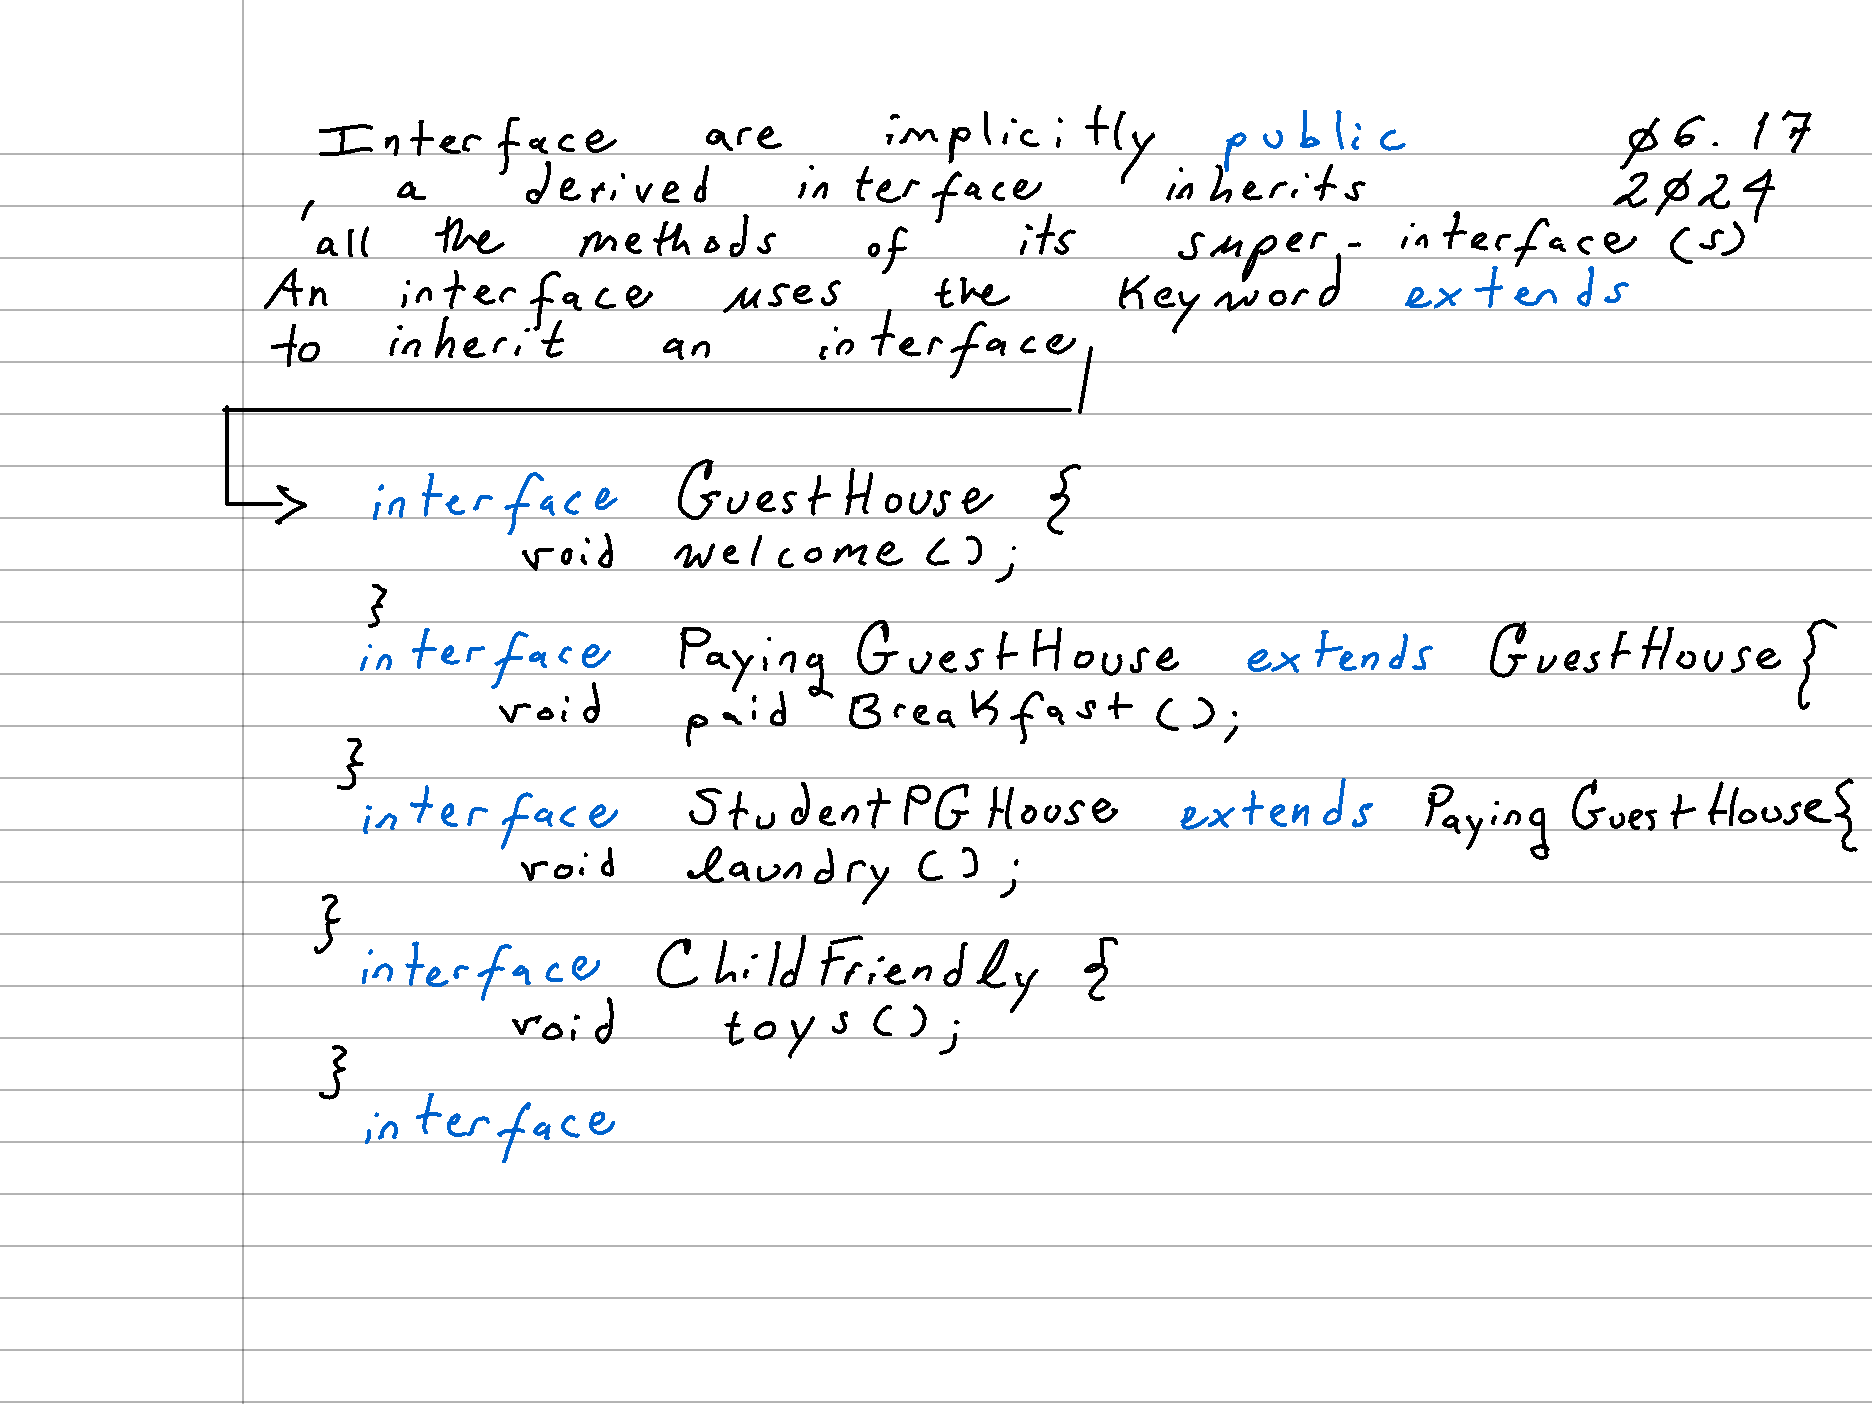 Interface are implicitly public 06.17
, a derived interface inherits 2024
all the methods of its super-interface(s)
An interface uses the keyword extends
to inherit an interface
interface GuestHouse {
void welcome();
}
interface PayingGuestHouse extends GuestHouse {
void paidBreakfast();
}
interface StudentPGHouse extends PayingGuestHouse {
void laundry();
}
interface ChildFriendly {
void toys();
}
interface